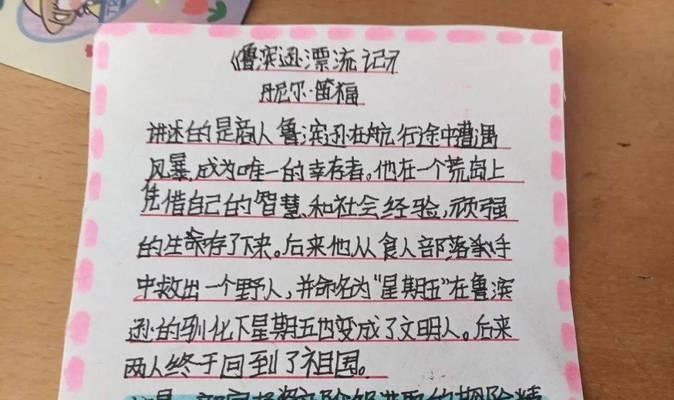 《鲁滨逊漂流记》
丹尼尔·笛福
讲述的是商人鲁滨逊在航行途中遭遇
风暴,成为唯一的幸存者。他在一个荒岛上
凭借自己的智慧和社会经验,顽强
的生命存了下来。后来他从食人部落手
中救出一个野人,并命名为"星期五"在鲁滨
逊的驯化下星期五也变成了文明人。后来
两人终于回到了祖国。